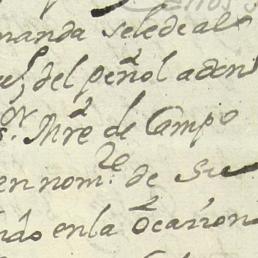 manda sele de al
del peñol aden
or Mre de Campo
en nomre de Su
ndo en la Ocasion